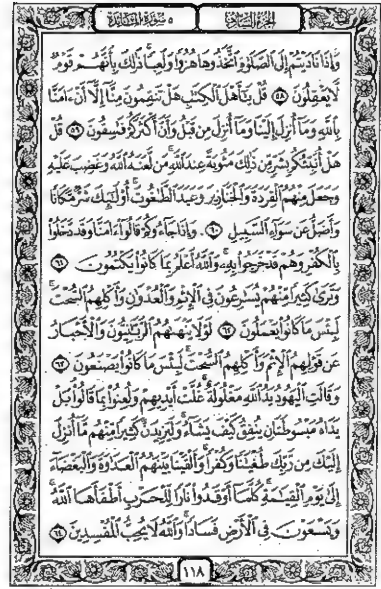 الجزء السادس ٥ سورة المائدة
وَإِذَا نَادَيْتُمْ إِلَى ٱلصَّلَوٰةِ ٱتَّخَذُوهَا هُزُوًا وَلَعِبًا ذَٰلِكَ بِأَنَّهُمْ قَوْمٌ
لَّا يَعْقِلُونَ ٥٨ قُلْ يَـٰٓأَهْلَ ٱلْكِتَـٰبِ هَلْ تَنقِمُونَ مِنَّآ إِلَّآ أَنْ ءَامَنَّا
بِٱللَّهِ وَمَآ أُنزِلَ إِلَيْنَا وَمَآ أُنزِلَ مِن قَبْلُ وَأَنَّ أَكْثَرَكُمْ فَـٰسِقُونَ ٥٩ قُلْ
هَلْ أُنَبِّئُكُم بِشَرٍّ مِّن ذَٰلِكَ مَثُوبَةً عِندَ ٱللَّهِ مَن لَّعَنَهُ ٱللَّهُ وَغَضِبَ عَلَيْهِ
وَجَعَلَ مِنْهُمُ ٱلْقِرَدَةَ وَٱلْخَنَازِيرَ وَعَبَدَ ٱلطَّـٰغُوتَ أُو۟لَـٰٓئِكَ شَرٌّ مَّكَانًا
وَأَضَلُّ عَن سَوَآءِ ٱلسَّبِيلِ ٦٠ وَإِذَا جَآءُوكُمْ قَالُوٓا۟ ءَامَنَّا وَقَد دَّخَلُوا۟
بِٱلْكُفْرِ وَهُمْ قَدْ خَرَجُوا۟ بِهِۦ وَٱللَّهُ أَعْلَمُ بِمَا كَانُوا۟ يَكْتُمُونَ ٦١
وَتَرَىٰ كَثِيرًا مِّنْهُمْ يُسَـٰرِعُونَ فِى ٱلْإِثْمِ وَٱلْعُدْوَٰنِ وَأَكْلِهِمُ ٱلسُّحْتَ
لَبِئْسَ مَا كَانُوا۟ يَعْمَلُونَ ٦٢ لَوْلَا يَنْهَىٰهُمُ ٱلرَّبَّـٰنِيُّونَ وَٱلْأَحْبَارُ
عَن قَوْلِهِمُ ٱلْإِثْمَ وَأَكْلِهِمُ ٱلسُّحْتَ لَبِئْسَ مَا كَانُوا۟ يَصْنَعُونَ ٦٣
وَقَالَتِ ٱلْيَهُودُ يَدُ ٱللَّهِ مَغْلُولَةٌ غُلَّتْ أَيْدِيهِمْ وَلُعِنُوا۟ بِمَا قَالُوا۟ بَلْ
يَدَاهُ مَبْسُوطَتَانِ يُنفِقُ كَيْفَ يَشَآءُ وَلَيَزِيدَنَّ كَثِيرًا مِّنْهُم مَّآ أُنزِلَ
إِلَيْكَ مِن رَّبِّكَ طُغْيَـٰنًا وَكُفْرًا وَأَلْقَيْنَا بَيْنَهُمُ ٱلْعَدَٰوَةَ وَٱلْبَغْضَآءَ
إِلَىٰ يَوْمِ ٱلْقِيَـٰمَةِ كُلَّمَآ أَوْقَدُوا۟ نَارًا لِّلْحَرْبِ أَطْفَأَهَا ٱللَّهُ
وَيَسْعَوْنَ فِى ٱلْأَرْضِ فَسَادًا وَٱللَّهُ لَا يُحِبُّ ٱلْمُفْسِدِينَ ٦٤
١١٨